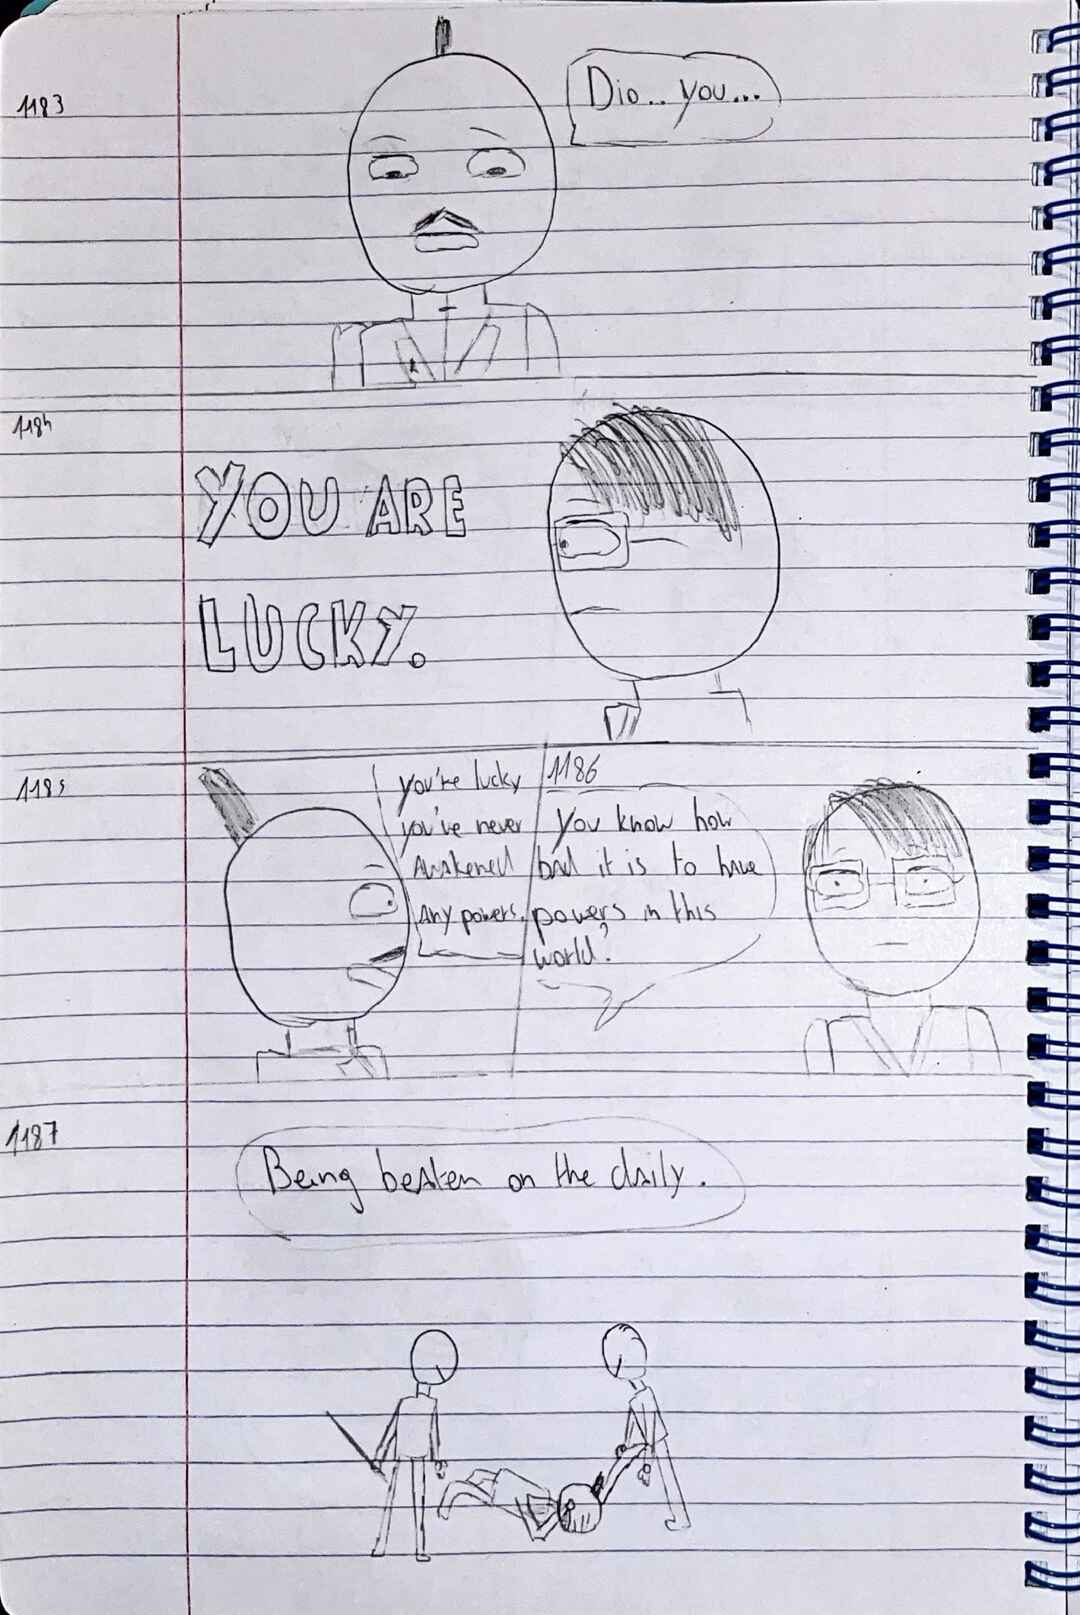 1183
Dio.. you...
1184
YOU ARE
LUCKY.
1185
you're lucky
you've never
Awakened
Any powers.
1186
You know how
bad it is to have
powers in this
world?
1187
Being beaten on the daily.